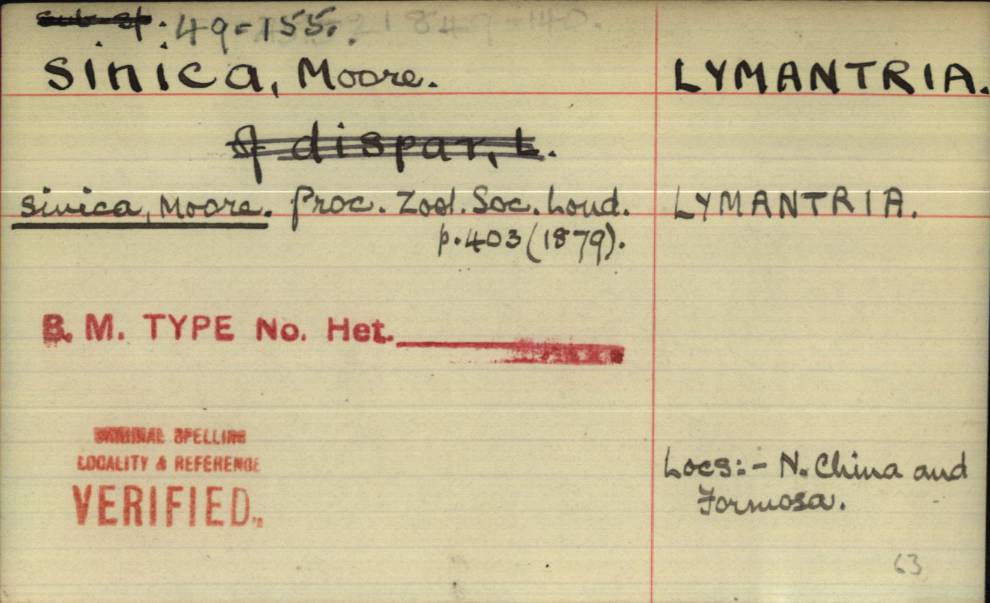 sub-sp. 49-155.
sinica, Moore. LYMANTRIA.
of dispar, L.
sinica, Moore. Proc. Zool. Soc. Lond. LYMANTRIA.
p. 403 (1879).
B. M. TYPE No. Het.
ORIGINAL SPELLING
LOCALITY & REFERENCE
VERIFIED.
Locs:- N. China and
Formosa.
63